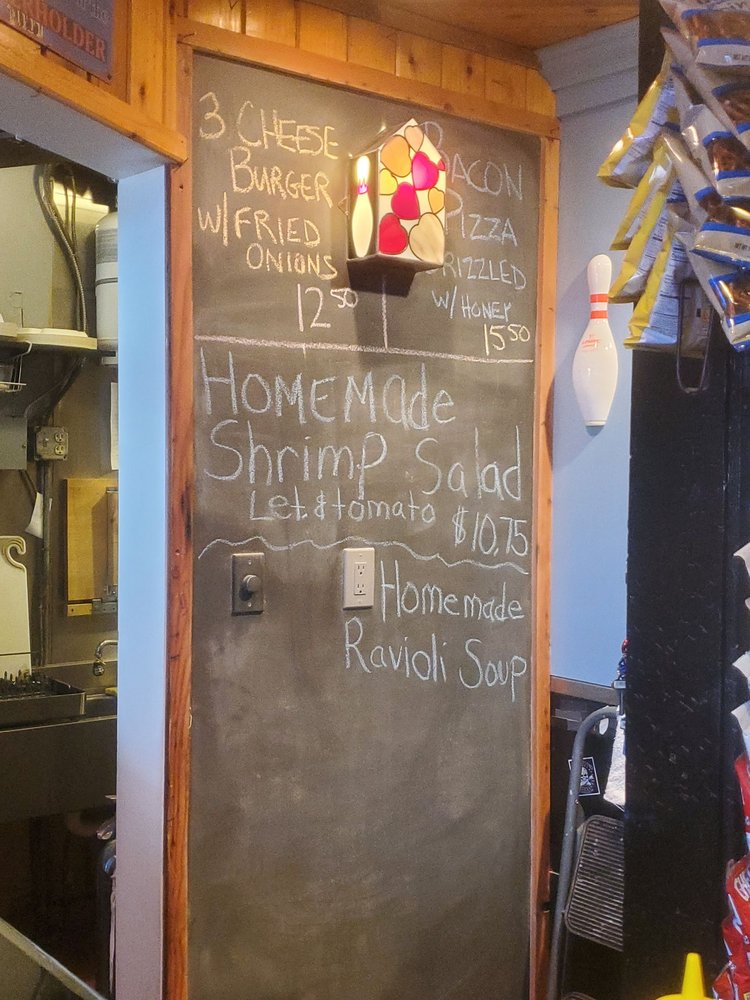 RHOLDER
3 CHEESE
BURGER
W/ FRIED
ONIONS
12⁵⁰
BACON
PIZZA
RIZZLED
W/ HONEY
15⁵⁰
HOMEMAde
Shrimp Salad
Let. & tomato $10.75
Homemade
Ravioli Soup